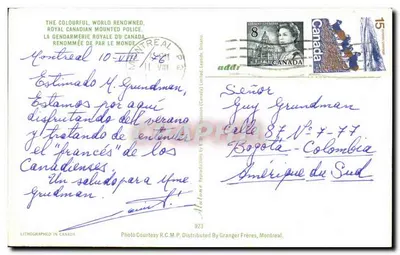 THE COLOURFUL, WORLD RENOWNED,
ROYAL CANADIAN MOUNTED POLICE.
LA GENDARMERIE ROYALE DU CANADA
RENOMMÉE DE PAR LE MONDE.
Montreal 10-VIII/76
Estimado M. Grundman,
Estamos por aquí
disfrutando del verano
y tratando de entender
el "francés" de los
Canadienses.
Un saludo para Mme
Grudman.
MONTREAL
8
CANADA
15
Canada
addr
Señor
Guy Grundman
Calle 87 Nº 7-77
Bogotá - Colombia
Amérique du Sud
LITHOGRAPHED IN CANADA
Photo Courtesy R.C.M.P. Distributed By Granger Frères, Montreal.